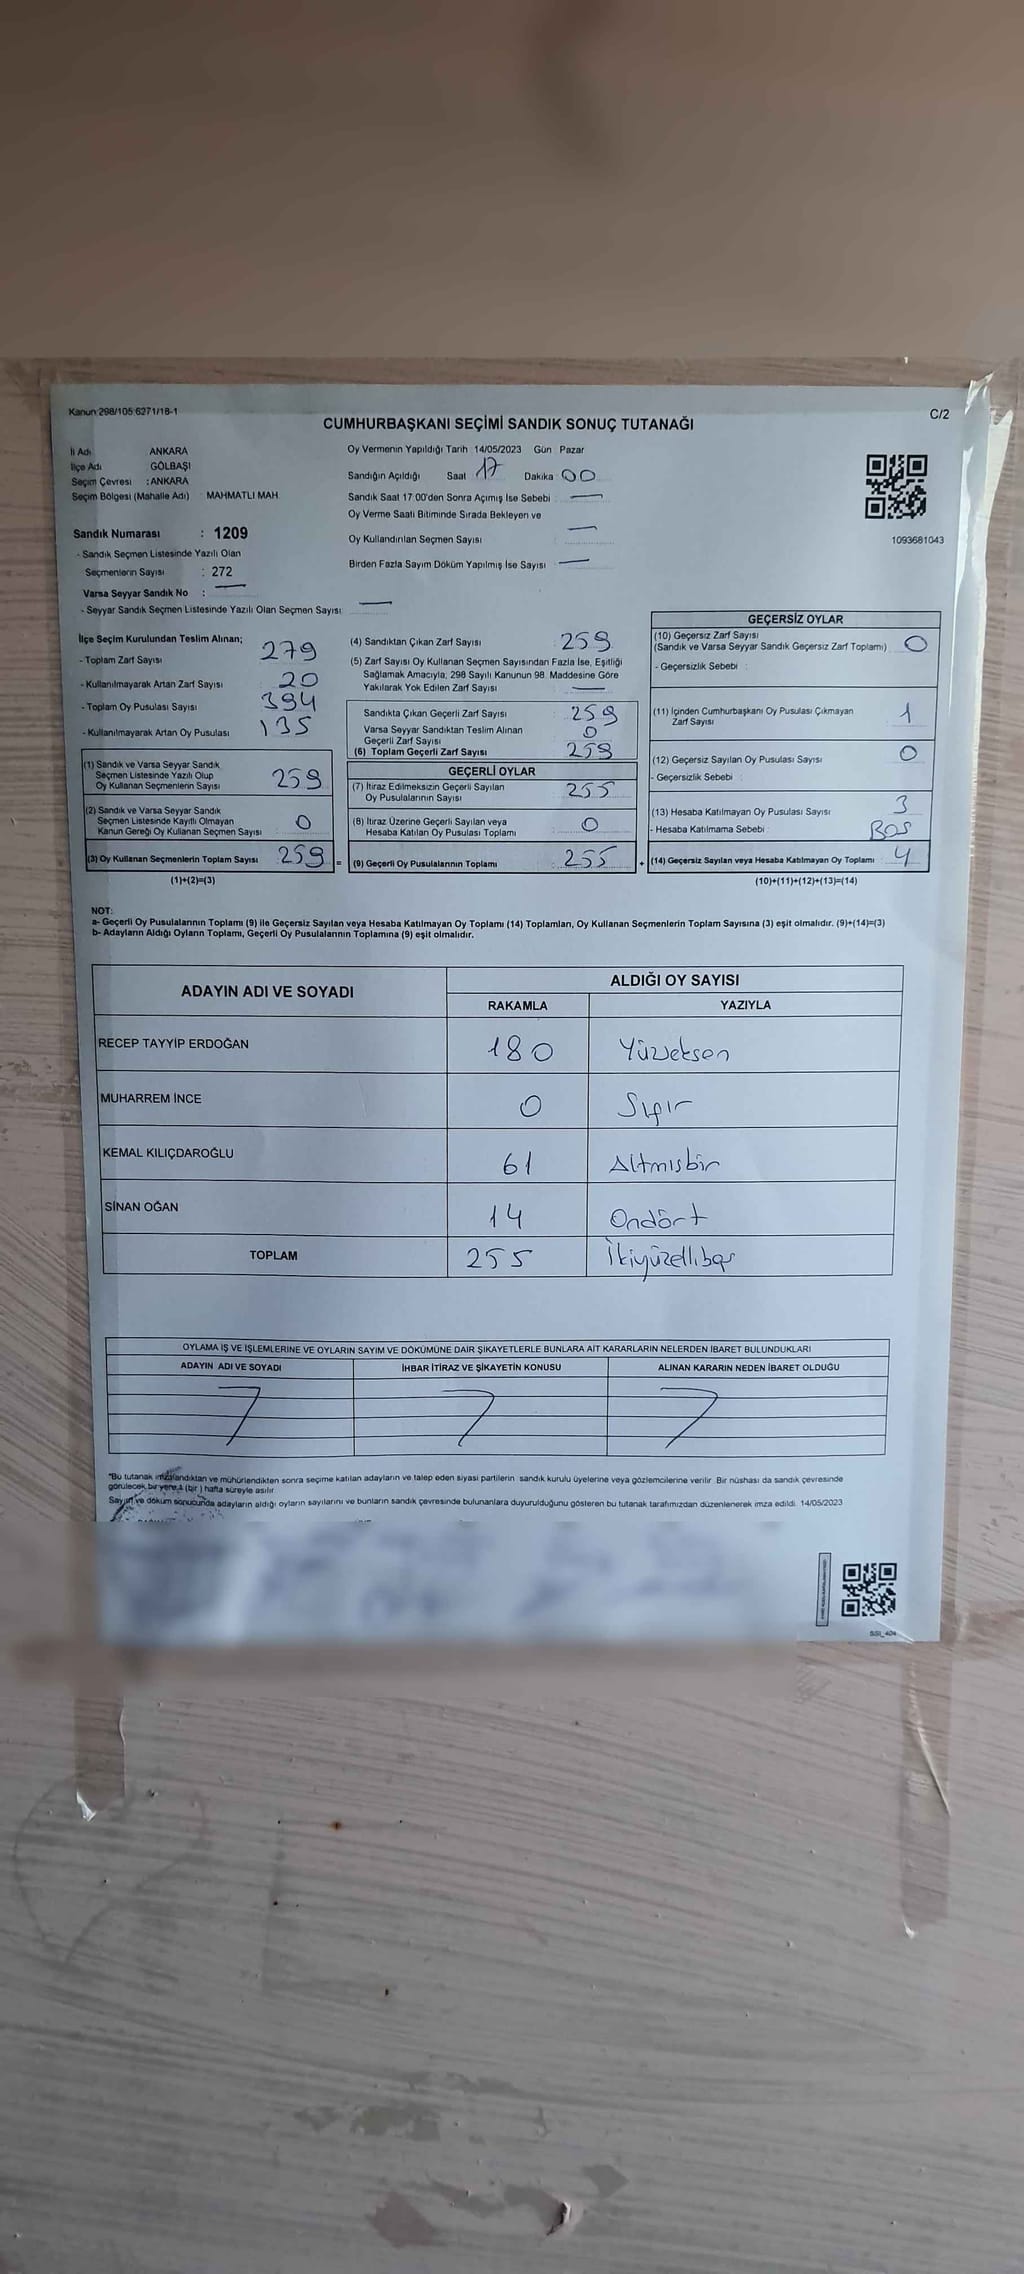 Kanun:298/105 6271/18-1
C/2
CUMHURBAŞKANI SEÇİMİ SANDIK SONUÇ TUTANAĞI
İl Adı ANKARA
İlçe Adı GÖLBAŞI
Seçim Çevresi : ANKARA
Seçim Bölgesi (Mahalle Adı) : MAHMATLI MAH.
Oy Vermenin Yapıldığı Tarih 14/05/2023 Gün Pazar
Sandığın Açıldığı Saat 17 Dakika 00
Sandık Saat 17:00'den Sonra Açımış İse Sebebi —
Oy Verme Saati Bitiminde Sırada Bekleyen ve
Oy Kullandırılan Seçmen Sayısı —
Birden Fazla Sayım Döküm Yapılmış İse Sayısı —
1093681043
Sandık Numarası : 1209
- Sandık Seçmen Listesinde Yazılı Olan
Seçmenlerin Sayısı : 272
Varsa Seyyar Sandık No : —
- Seyyar Sandık Seçmen Listesinde Yazılı Olan Seçmen Sayısı: —
İlçe Seçim Kurulundan Teslim Alınan;
- Toplam Zarf Sayısı 279
- Kullanılmayarak Artan Zarf Sayısı 20
- Toplam Oy Pusulası Sayısı 394
- Kullanılmayarak Artan Oy Pusulası 135
(1) Sandık ve Varsa Seyyar Sandık
Seçmen Listesinde Yazılı Olup
Oy Kullanan Seçmenlerin Sayısı 259
(2) Sandık ve Varsa Seyyar Sandık
Seçmen Listesinde Kayıtlı Olmayan
Kanun Gereği Oy Kullanan Seçmen Sayısı 0
(3) Oy Kullanan Seçmenlerin Toplam Sayısı 259 =
(1)+(2)=(3)
(4) Sandıktan Çıkan Zarf Sayısı 259
(5) Zarf Sayısı Oy Kullanan Seçmen Sayısından Fazla İse, Eşitliği
Sağlamak Amacıyla, 298 Sayılı Kanunun 98. Maddesine Göre
Yakılarak Yok Edilen Zarf Sayısı —
Sandıkta Çıkan Geçerli Zarf Sayısı 259
Varsa Seyyar Sandıktan Teslim Alınan
Geçerli Zarf Sayısı 0
(6) Toplam Geçerli Zarf Sayısı 259
GEÇERLİ OYLAR
(7) İtiraz Edilmeksizin Geçerli Sayılan
Oy Pusulalarının Sayısı 255
(8) İtiraz Üzerine Geçerli Sayılan veya
Hesaba Katılan Oy Pusulası Toplamı 0
(9) Geçerli Oy Pusulalarının Toplamı 255 +
GEÇERSİZ OYLAR
(10) Geçersiz Zarf Sayısı
(Sandık ve Varsa Seyyar Sandık Geçersiz Zarf Toplamı) 0
- Geçersizlik Sebebi :
(11) İçinden Cumhurbaşkanı Oy Pusulası Çıkmayan
Zarf Sayısı 1
(12) Geçersiz Sayılan Oy Pusulası Sayısı 0
- Geçersizlik Sebebi :
(13) Hesaba Katılmayan Oy Pusulası Sayısı 3
- Hesaba Katılmama Sebebi : Boş
(14) Geçersiz Sayılan veya Hesaba Katılmayan Oy Toplamı 4
(10)+(11)+(12)+(13)=(14)
NOT:
a- Geçerli Oy Pusulalarının Toplamı (9) ile Geçersiz Sayılan veya Hesaba Katılmayan Oy Toplamı (14) Toplamları, Oy Kullanan Seçmenlerin Toplam Sayısına (3) eşit olmalıdır. (9)+(14)=(3)
b- Adayların Aldığı Oyların Toplamı, Geçerli Oy Pusulalarının Toplamına (9) eşit olmalıdır.
ADAYIN ADI VE SOYADI ALDIĞI OY SAYISI
RAKAMLA YAZIYLA
RECEP TAYYİP ERDOĞAN 180 Yüzseksen
MUHARREM İNCE 0 Sıfır
KEMAL KILIÇDAROĞLU 61 Altmışbir
SİNAN OĞAN 14 Ondört
TOPLAM 255 İkiyüzellibeş
OYLAMA İŞ VE İŞLEMLERİNE VE OYLARIN SAYIM VE DÖKÜMÜNE DAİR ŞİKAYETLERLE BUNLARA AİT KARARLARIN NELERDEN İBARET BULUNDUKLARI
ADAYIN ADI VE SOYADI İHBAR İTİRAZ VE ŞİKAYETİN KONUSU ALINAN KARARIN NEDEN İBARET OLDUĞU
"Bu tutanak imzalandıktan ve mühürlendikten sonra seçime katılan adayların ve talep eden siyasi partilerin sandık kurulu üyelerine veya gözlemcilerine verilir. Bir nüshası da sandık çevresinde
görülecek bir yere 1 (bir ) hafta süreyle asılır.
Sayım ve döküm sonucunda adayların aldığı oyların sayılarını ve bunların sandık çevresinde bulunanlara duyurulduğunu gösteren bu tutanak tarafımızdan düzenlenerek imza edildi. 14/05/2023
SSI_404